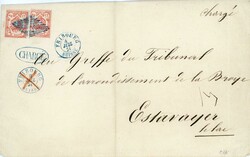 Chargé
FRIBOURG
CHARGÉ
Au Greffe du Tribunal
de l'arrondissement de la Broye
Estavayer
le lac